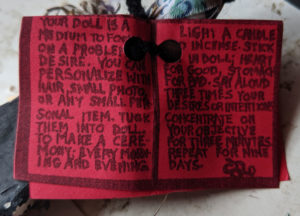 YOUR DOLL IS A
MEDIUM TO FOC
ON A PROBLEM
DESIRE. YOU CAN
PERSONALIZE WITH
HAIR, SMALL PHOTO,
OR ANY SMALL PER-
SONAL ITEM. TUCK
THEM INTO DOLL.
TO MAKE A CERE-
MONY: EVERY MORN-
ING AND EVENING
LIGHT A CANDLE
INCENSE. STICK
IN DOLL; HEART
FOR GOOD, STOMACH
FOR BAD. SAY ALOUD
THREE TIMES YOUR
DESIRES OR INTENTIONS
CONCENTRATE ON
YOUR OBJECTIVE
FOR THREE MINUTES.
REPEAT FOR NINE
DAYS.